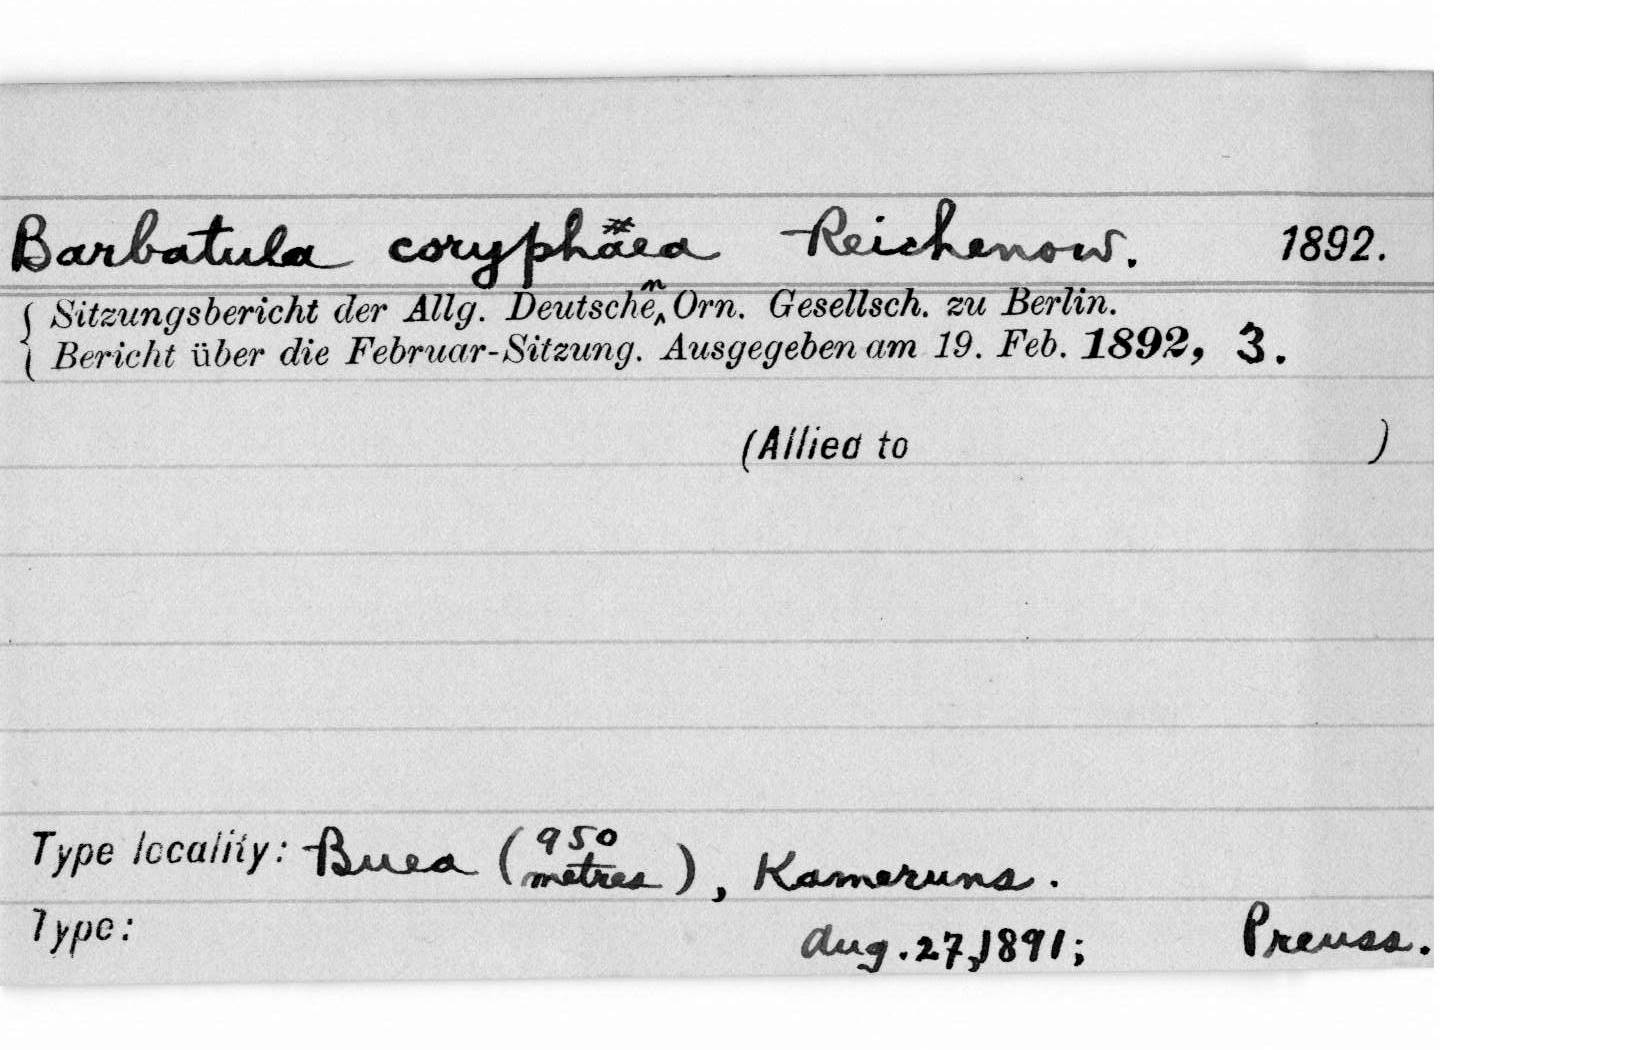 Barbatula coryphäea Reichenow. 1892.
Sitzungsbericht der Allg. Deutschen Orn. Gesellsch. zu Berlin.
Bericht über die Februar-Sitzung. Ausgegeben am 19. Feb. 1892, 3.
(Allied to )
Type locality: Buea (950 metres), Kameruns.
Type: Aug. 27, 1891; Preuss.